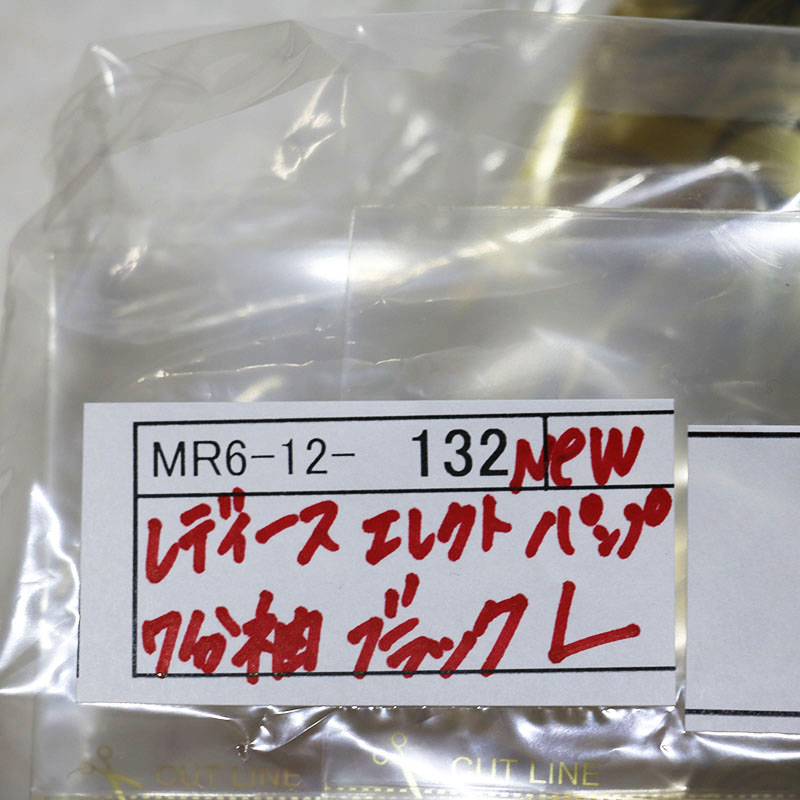 MR6-12- 132 NEW
レディース エレクト パップ
7分袖 ブラック L
CUT LINE CUT LINE